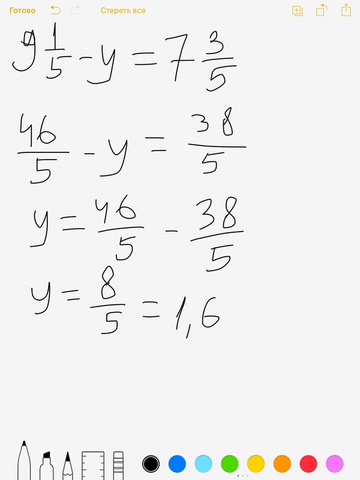 Готово Стереть все
9 1/5 - y = 7 3/5
46/5 - y = 38/5
y = 46/5 - 38/5
y = 8/5 = 1,6